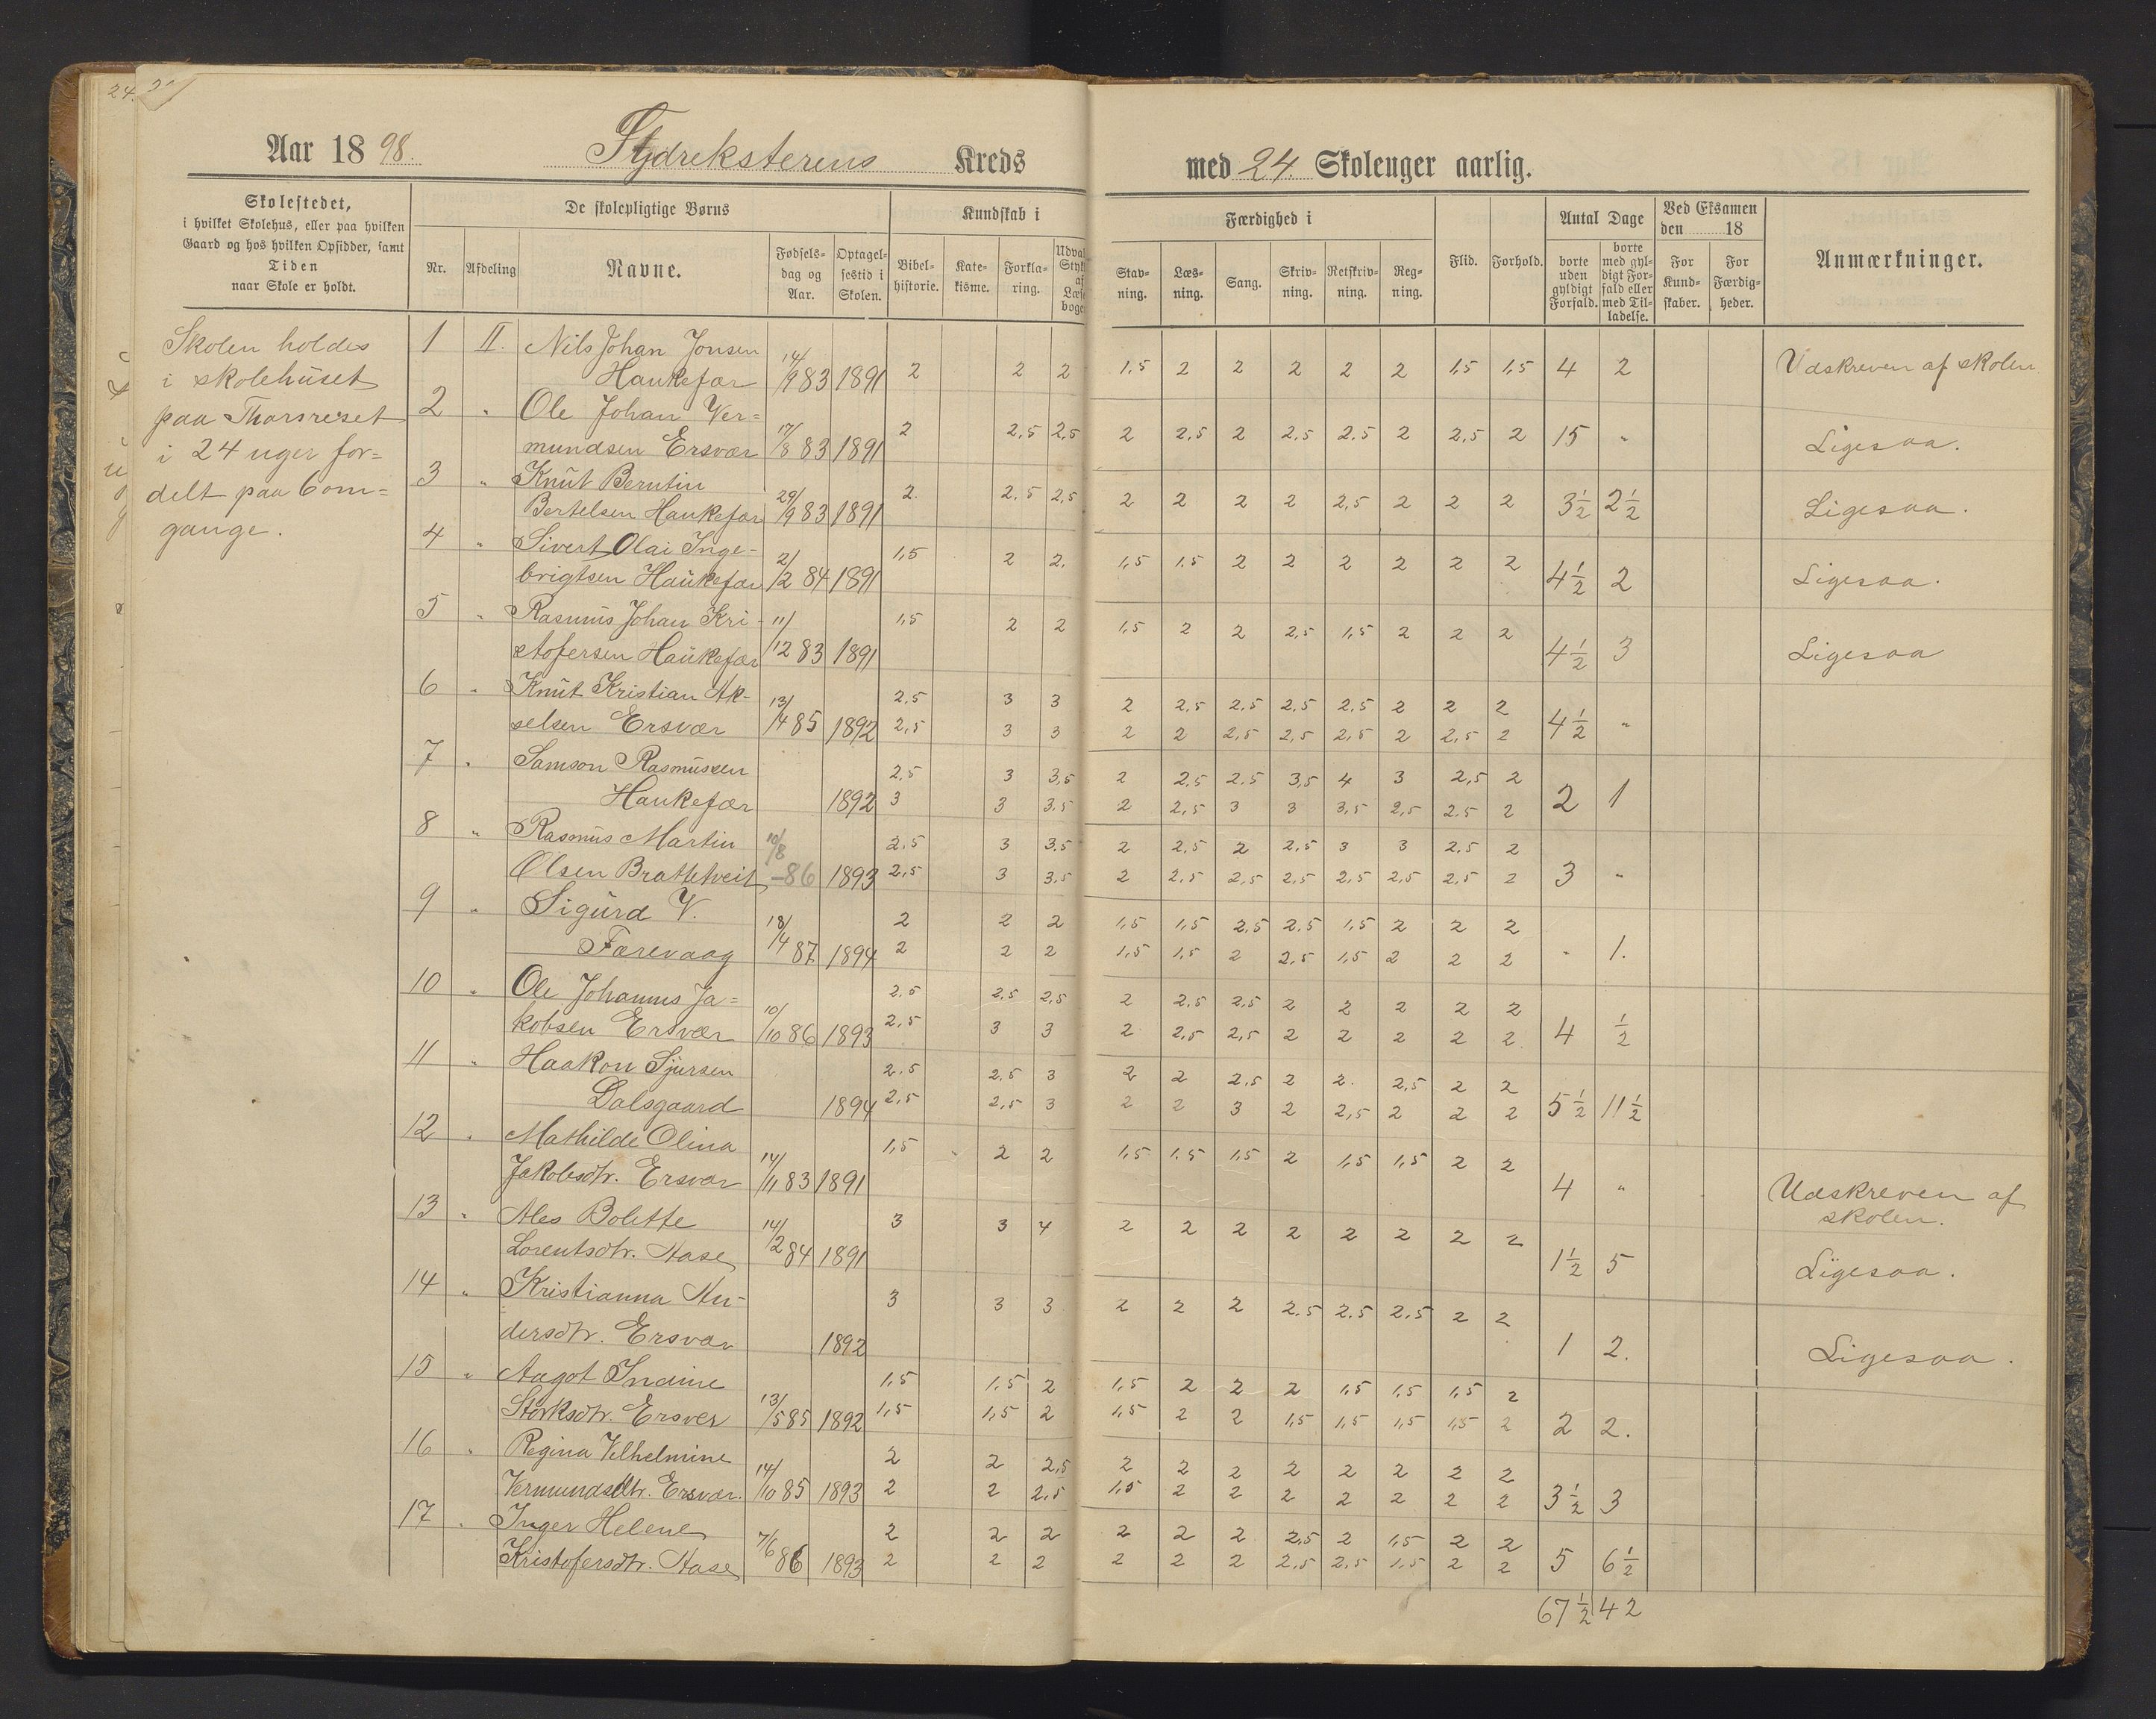 24.
Aar 1898. Kreds med 24. Skoleuger aarlig.
Skolestedet,
i hvilket Skolehus, eller paa hvilken
Gaard og hos hvilken Opsidder, samt
Tiden
naar Skole er holdt.
De skolepligtige Børns
Nr. Afdeling Navne. Fødsels-dag og Aar. Optagelsestid i Skolen.
Kundskab i
Bibelhistorie. Katekisme. Forklaring.
Færdighed i
Stavning. Læsning. Sang. Skrivning. Retskrivning. Regning.
Flid. Forhold.
Antal Dage
borte uden gyldigt Forfald. borte med gyldigt Forfald eller med Tilladelse.
Ved Eksamen den 18
For Kundskaber. For Færdigheder.
Anmærkninger.
Skolen holdes
i skolehuset
paa Thorsreset
i 24 uger for=
delt paa 6 om=
gange.
1 II. Nils Johan Jonsen
Haukefær 14/9 83 1891 2 2 2 1,5 2 2 2 2 2 1,5 1,5 4 2 Udskreven af skolen
2 " Ole Johan Ver=
mundsen Ersvær 17/8 83 1891 2 2,5 2,5 2 2,5 2 2,5 2,5 2 2,5 2 15 " Ligesaa.
3 " Knut Berntin
Bertelsen Haukefær 29/9 83 1891 2. 2,5 2,5 2 2 2 2 2,5 2 2 2 3½ 2½ Ligesaa.
4 " Sivert Olai Inge-
brigtsen Haukefær 2/2 84 1891 1,5 2 2. 1,5 1,5 2 2 2 2 2 2 4½ 2 Ligesaa.
5 " Rasmus Johan Kri-
stofersen Haukefær 11/12 83 1891 1,5 2 2 1,5 2 2 2,5 1,5 2 2 2 4½ 3 Ligesaa
6 " Knut Kristian Ak- 2,5 3 3 2 2,5 2,5 2,5 2,5 2 2 2
selsen Ersvær 13/4 85 1892 2,5 3 3 2 2 2,5 2,5 2,5 2 2,5 2 4½ "
7 " Samson Rasmussen 2,5 3 3,5 2 2,5 2,5 3,5 4 3 2,5 2
Haukefær 1892 3 3 3,5 2 2,5 3 3 3,5 2,5 2,5 2 2 1
8 " Rasmus Martin 2,5 3 3,5 2 2,5 2 2,5 3 3 2,5 2
Olsen Brattetveit 10/8 -86 1893 2,5 3 3,5 2 2,5 2,5 2,5 2,5 2,5 2,5 2 3 "
9 " Sigurd V. 2 2 2 1,5 1,5 2,5 2,5 1,5 2 2 2
Færevaag 18/4 87 1894 2 2 2 1,5 1,5 2 2,5 1,5 2 2 2 " 1.
10 " Ole Johannes Ja= 2,5 2,5 2,5 2 2,5 2,5 2 2 2 2 2
kobsen Ersvær 10/10 86 1893 2,5 3 3 2 2,5 2,5 2 2 2 2 2 4 ½
11 " Haakon Sjursen 2,5 2,5 3 2 2 2,5 2 2. 2,5 2 2
Dalsgaard 1894 2,5 2,5 3 2 2 3 2 2,5 2 2 2 5½ 11½
12 " Mathilde Olina 1,5 2 2 1,5 1,5 1,5 2 1,5 1,5 2 2
Jakobsdtr. Ersvær 14/11 83 1891 4 " Udskreven af
skolen.
13 " Ales Bolette 3 3 4 2 2 2 2 2 2 2 2
Lorentsdtr. Aase 14/2 84 1891 1½ 5 Ligesaa.
14 " Kristianna An- 3 3 3 2 2 2 2,5 2,5 2,5 2 2
dersdtr. Ersvær 1892 1 2. Ligesaa.
15 " Aagot Indine 1,5 1,5 2 1,5 2 2 2 1,5 1,5 1,5 2
Størksdtr. Ersver 13/5 85 1892 1,5 1,5 2 1,5 2 2 1,5 1,5 1,5 1,5 2 2 2.
16 " Regina Vilhelmine 2 2 2,5 2 2 2 2 2 2 2 2
Vermundsdtr. Ersvær. 14/10 85 1893 2 2 2,5 1,5 2 2 2 2 2 2 2 3½ 3
17 " Inger Helene 2 2 2 2 2 2 2,5 2 1,5 2 2
Kristofersdtr. Aase 7/6 86 1893 2 2 2 2 2 2 2,5 2,5 1,5 2 2 5 6½
67½ 42